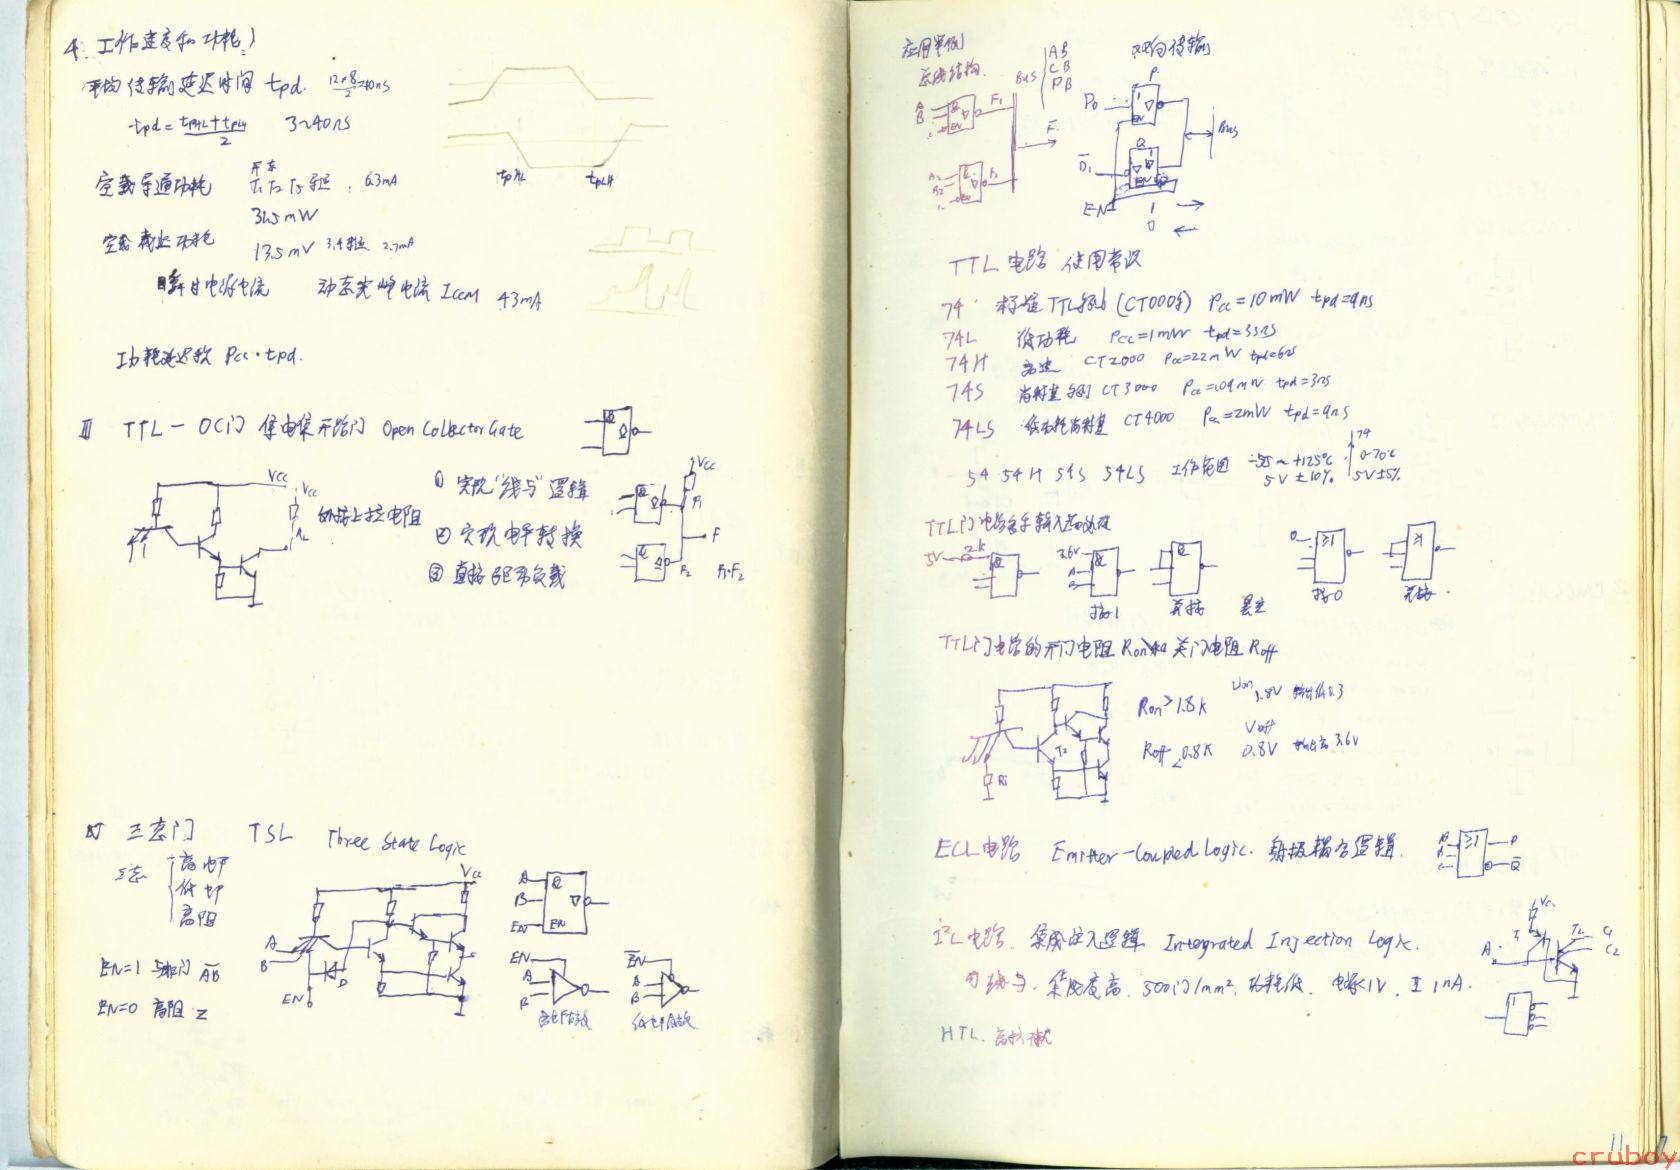 4. 工作速度和功耗
平均传输延迟时间 tpd. 12+8/2=10ns
tpd = tpHL+tpLH/2 3~40ns
tpHL tpLH
空载导通功耗 T1 T2 T5 导通 6.3mA
31.5mW
空载截止功耗 13.5mV 2.7mA
瞬时电源电流 动态尖峰电流 ICCM 43mA
功耗延迟积 Pcc·tpd.
Ⅲ TTL — OC门 集电集开路门 Open Collector Gate
① 实现"线与"逻辑
② 实现电平转换
③ 直接驱动负载
Vcc Vcc RL 外接上拉电阻
Vcc F1 F F2 F1·F2
Ⅳ 三态门 TSL Three State Logic
三态 高电平
低电平
高阻
EN=1 与非门 AB
EN=0 高阻 Z
A B EN D Vcc
A B EN & EN
EN A B 高电平有效
EN A B 低电平有效
应用举例
总线结构
Bus AB CB DB
双向传输
A B EN F1
A2 B2 EN F2
D0 P EN
D1 Q EN
Bus
EN 1 0
TTL 电路 使用常识
74 标准TTL系列 (CT000系) Pcc=10mW tpd=9ns
74L 低功耗 Pcc=1mW tpd=33ns
74H 高速 CT2000 Pcc=22mW tpd=6ns
74S 肖特基系列 CT3000 Pcc=19mW tpd=3ns
74LS 低功耗肖特基 CT4000 Pcc=2mW tpd=9ns
54 54H 54S 54LS 工作范围 -55~+125℃ 5V±10% 74 0-70℃ 5V±5%
TTL门电路多余输入端处理
5V 2K & 3.6V A B & & ≥1
接1 并接 悬空 接0 并接
TTL门电路的开门电阻 Ron和关门电阻 Roff
Ron>1.8K Von 1.8V 输出低0.3
Roff<0.8K Voff 0.8V 输出高3.6V
T2 Ri
ECL电路 Emitter-Coupled Logic. 射极耦合逻辑.
≥1 P Q
I²L电路. 集成注入逻辑 Integrated Injection Logic.
可线与. 集成度高. 500门/mm². 功耗低. 电源<1V. I 1nA.
A C1 C2
HTL. 高抗扰
11
cruboy